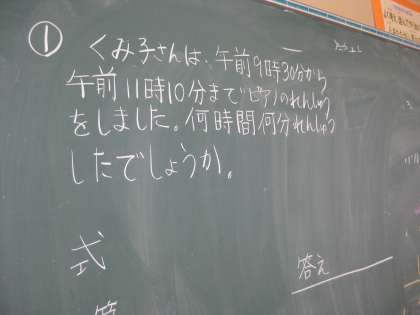 ① くみ子さんは、午前9時30分から
午前11時10分までピアノのれんしゅう
をしました。何時間何分れんしゅう
したでしょうか。
式
答え